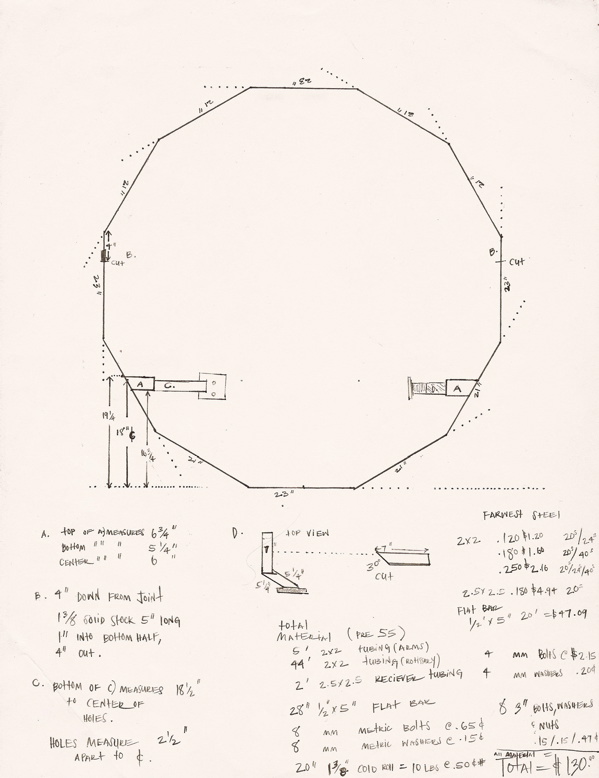 23"
21"
21"
21"
21"
4"
B.
CUT
B.
CUT
23"
23"
A
C.
A
21"
19 1/4
18" ¢
21"
21"
23"
A. TOP OF A) MEASURES 6 3/4"
BOTTOM " " " 5 1/4"
CENTER " " " 6"
B. 4" DOWN FROM JOINT
1 3/8 SOLID STOCK 5" LONG
1" INTO BOTTOM HALF,
4" OUT.
C. BOTTOM OF C) MEASURES 18 1/2"
TO CENTER OF
HOLES.
HOLES MEASURE 2 1/2"
APART TO ¢.
D. TOP VIEW
7"
7"
30°
CUT
5 1/4
5 1/4"
TOTAL
MATERIAL (PRE 55)
5' 2X2 TUBING (ARMS)
44' 2X2 TUBING
2' 2.5X2.5 RECIEVER TUBING
28" 1/2 X 5" FLAT BAR
8 mm METRIC BOLTS @ .65¢
8 mm METRIC WASHERS @ .15¢
20" 1 3/8 COLD ROLL = 10 LBS @ .50¢#
FARWEST STEEL
2X2 .120 $1.20 20'/24'
.180 $1.60 20'/40'
.250 $2.16 20'/24'/40'
2.5X2.5 .180 $4.94 20'
FLAT BAR
1/2' X 5" 20' = $47.09
4 mm BOLTS @ $2.15
4 mm WASHERS .20¢
8 3" BOLTS, WASHERS
& NUTS
.15/.15/.47¢
ALL MATERIAL =
TOTAL = $130.00